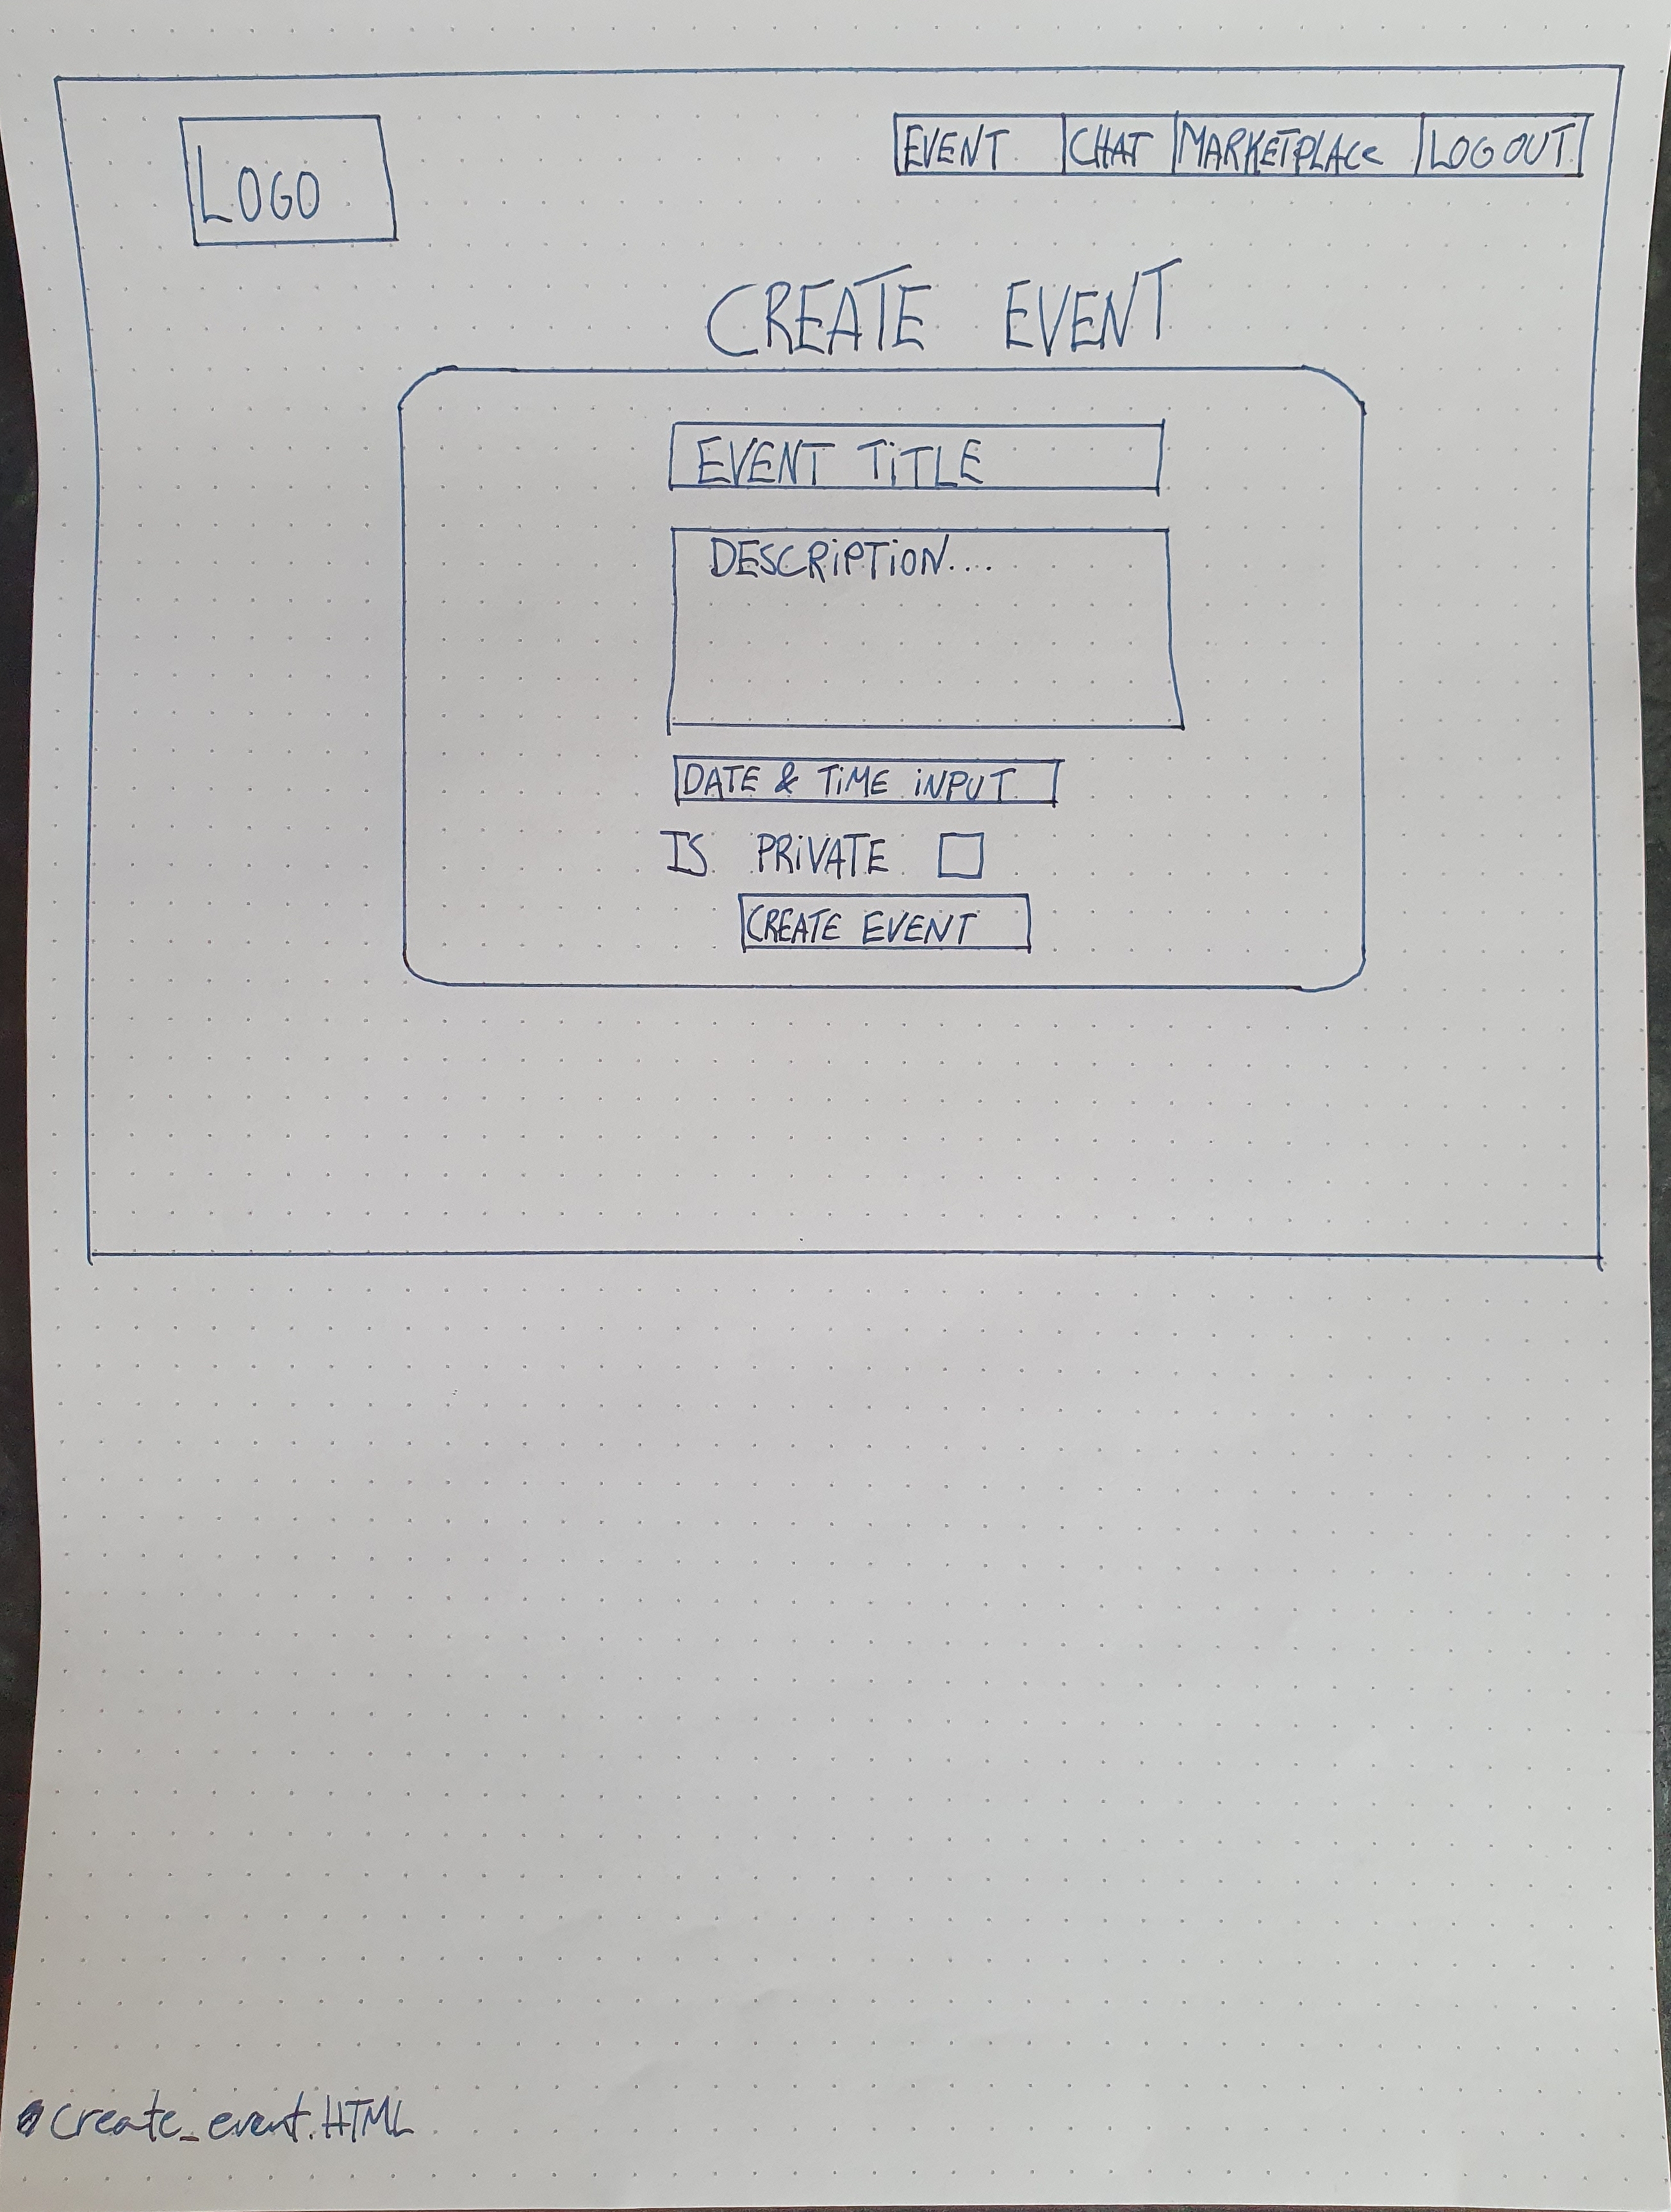 LOGO
EVENT CHAT MARKETPLACE LOG OUT
CREATE EVENT
EVENT TITLE
DESCRIPTION....
DATE & TIME INPUT
IS PRIVATE
CREATE EVENT
create_event.HTML